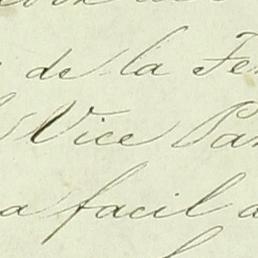 de la Fe
Vice Par
a facil a